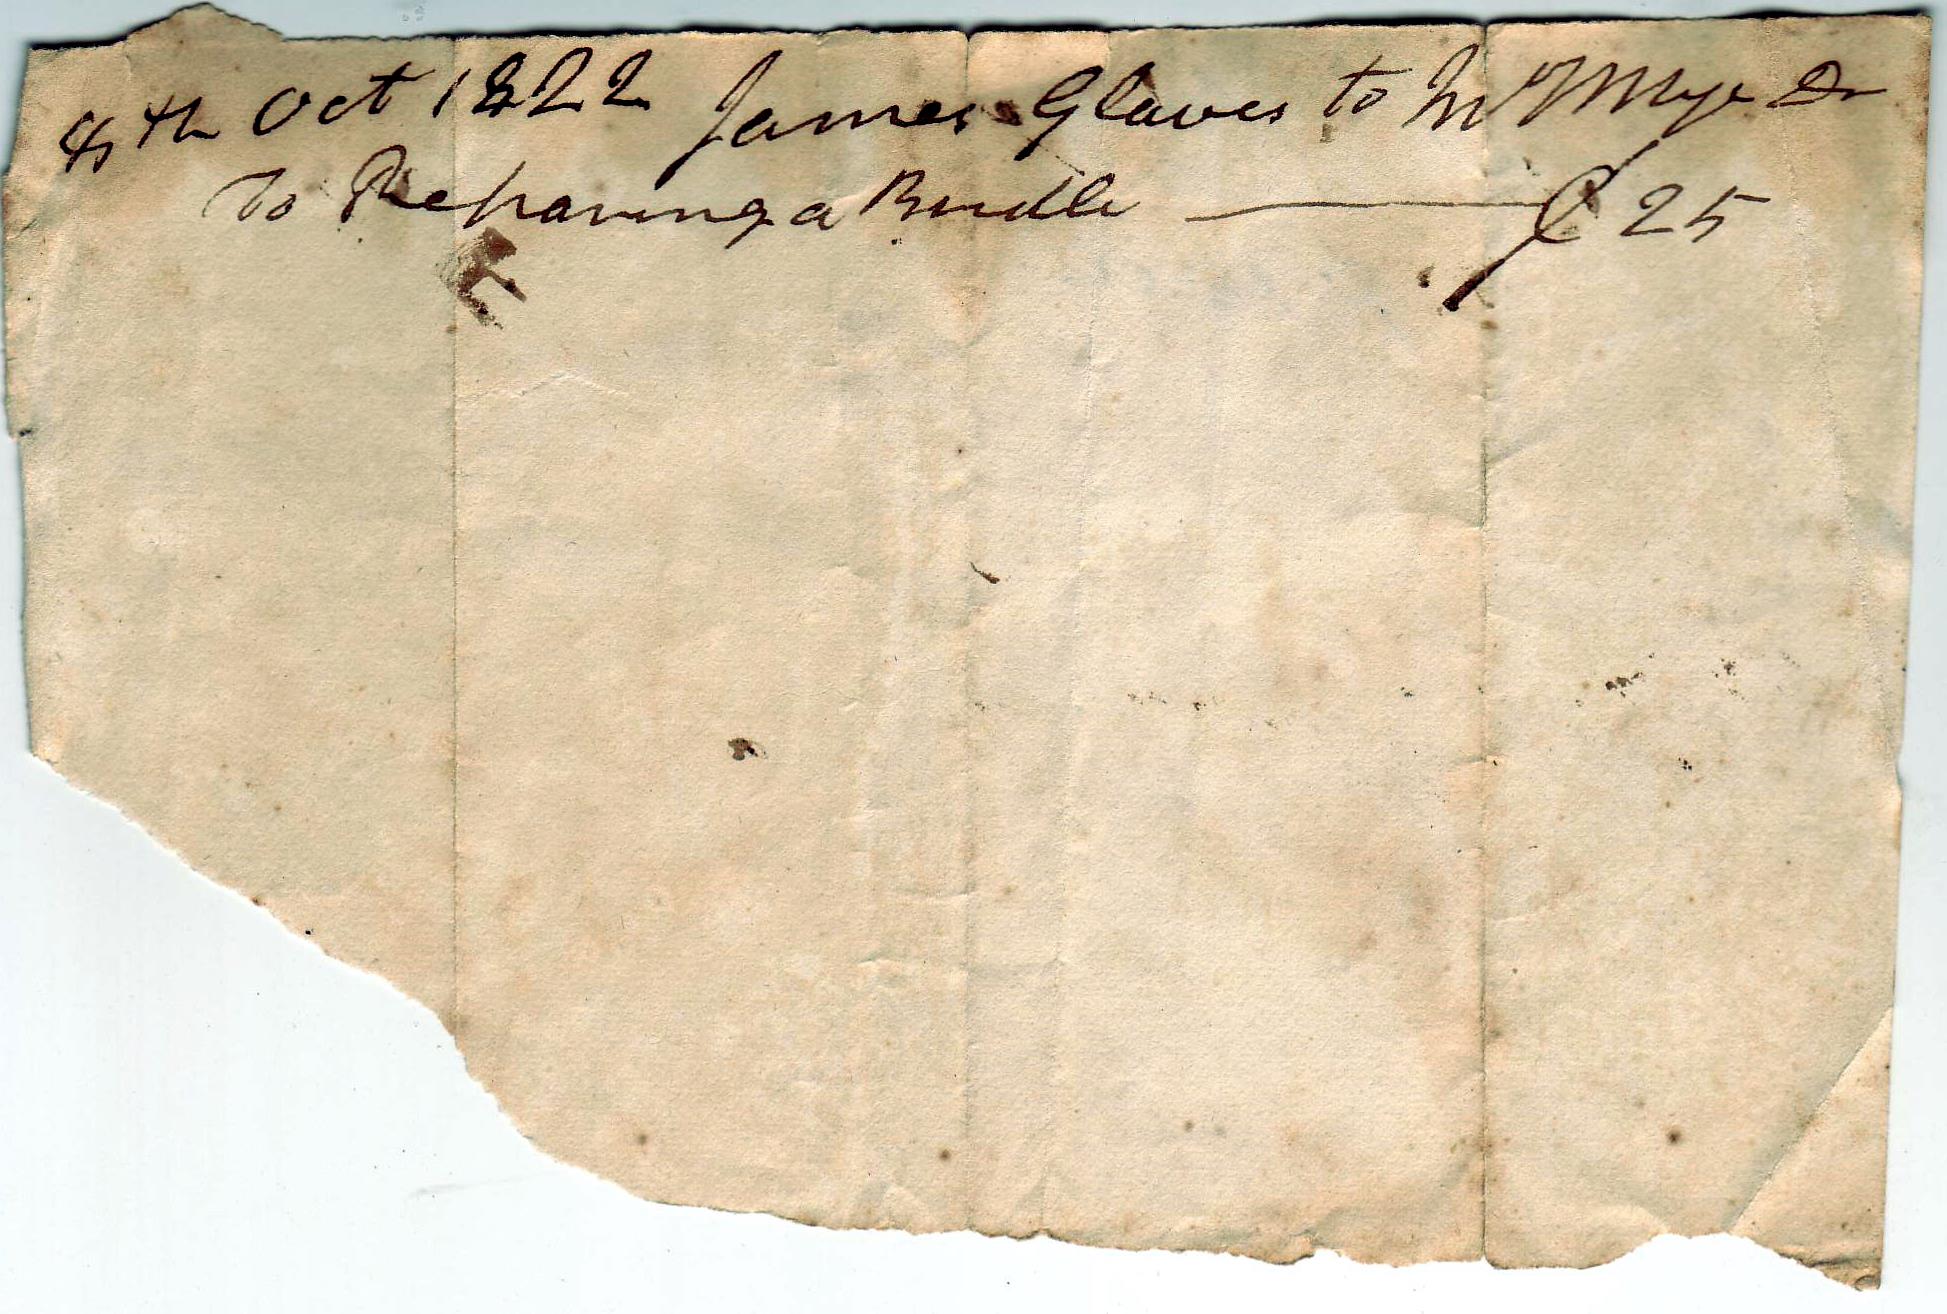 8th Oct 1822 James Glaves to Wm Mye Dr
To Reparing a Bridle — C 25